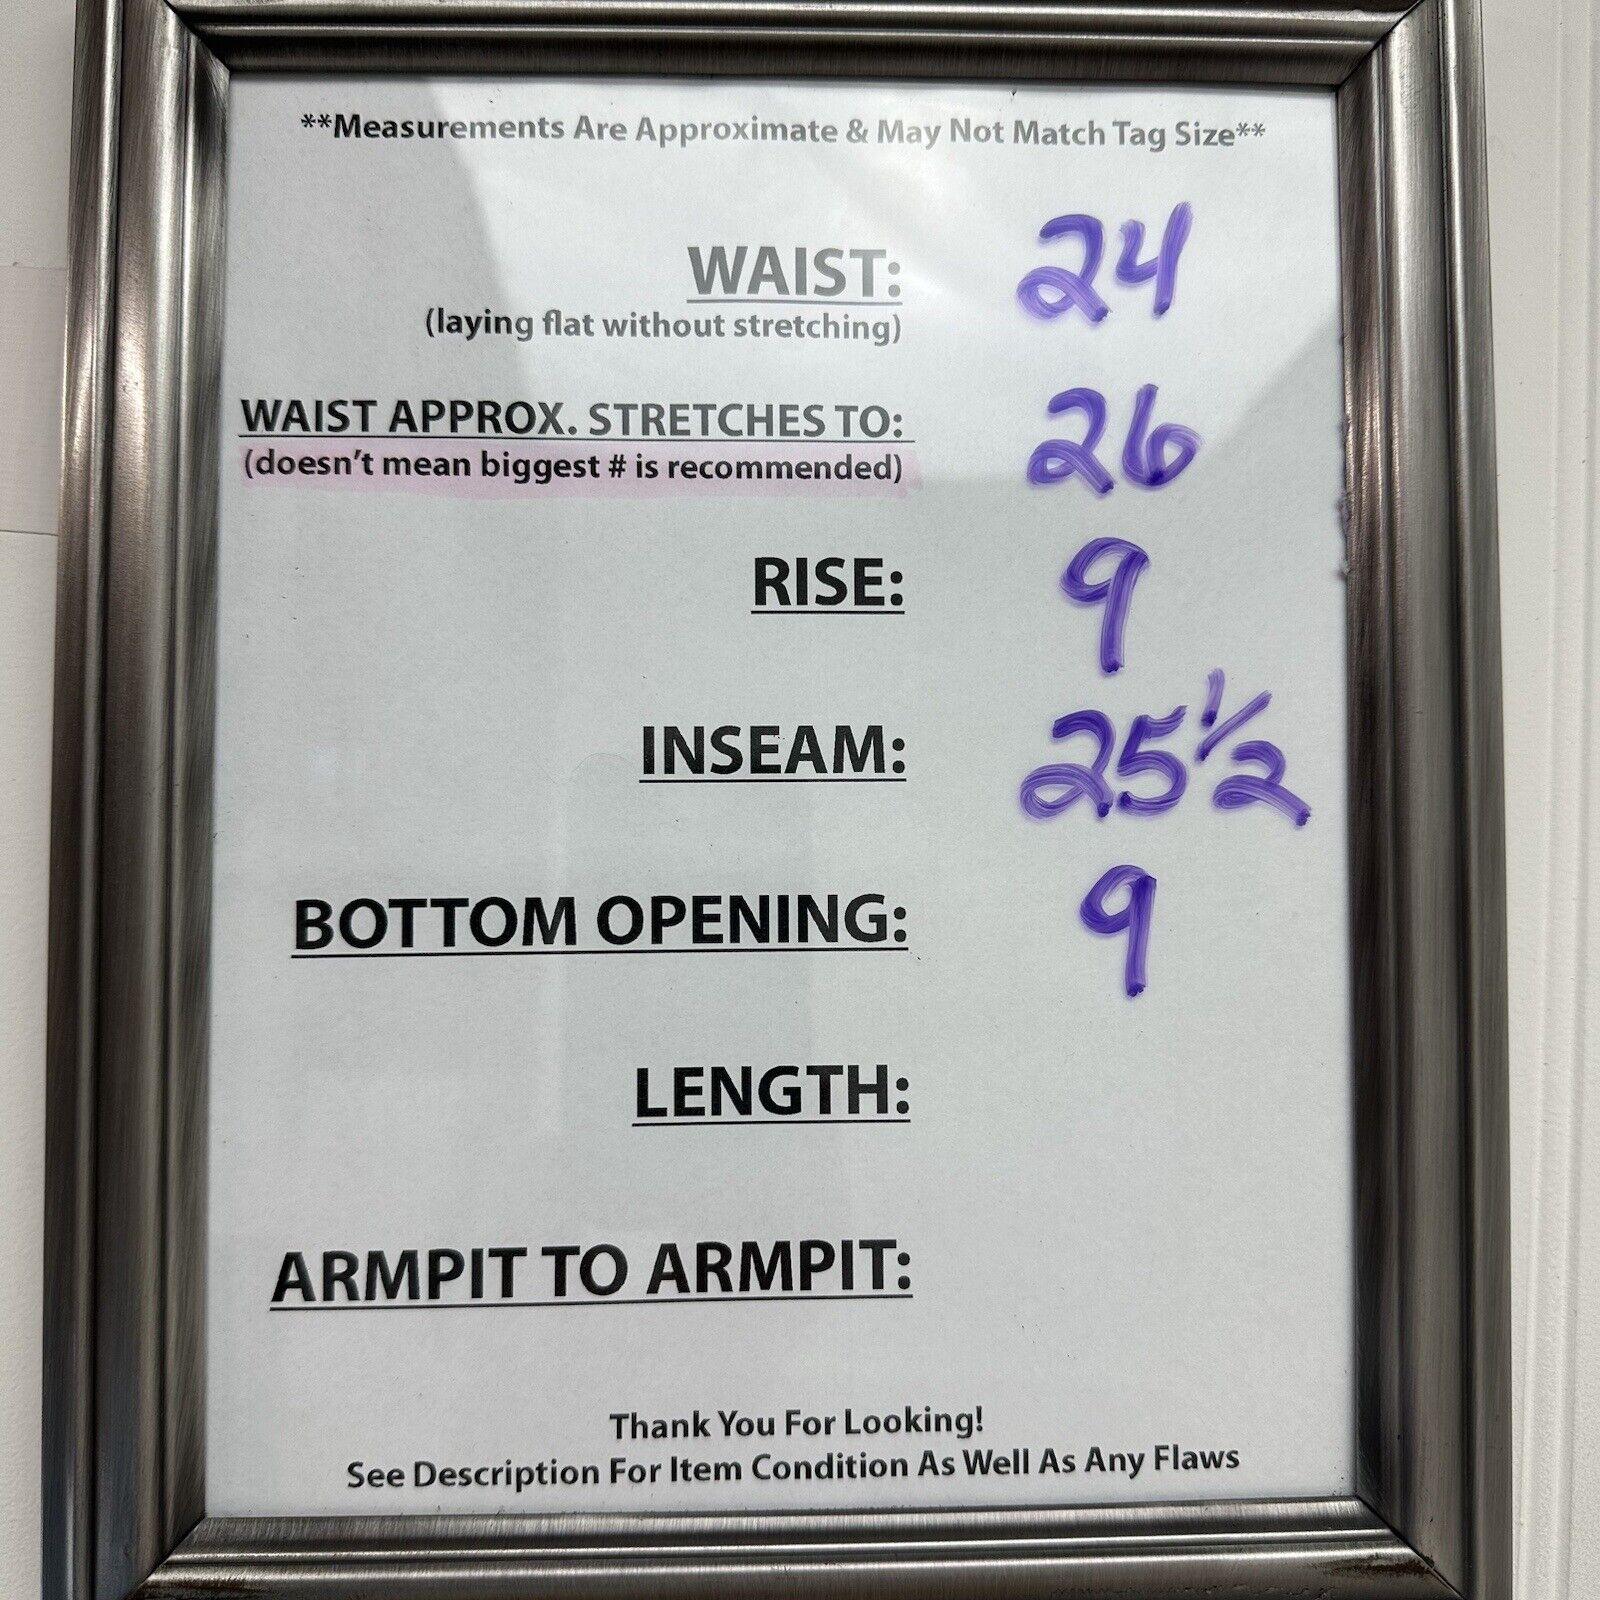 **Measurements Are Approximate & May Not Match Tag Size**
WAIST: 24
(laying flat without stretching)
WAIST APPROX. STRETCHES TO: 26
(doesn't mean biggest # is recommended)
RISE: 9
INSEAM: 25 1/2
BOTTOM OPENING: 9
LENGTH:
ARMPIT TO ARMPIT:
Thank You For Looking!
See Description For Item Condition As Well As Any Flaws